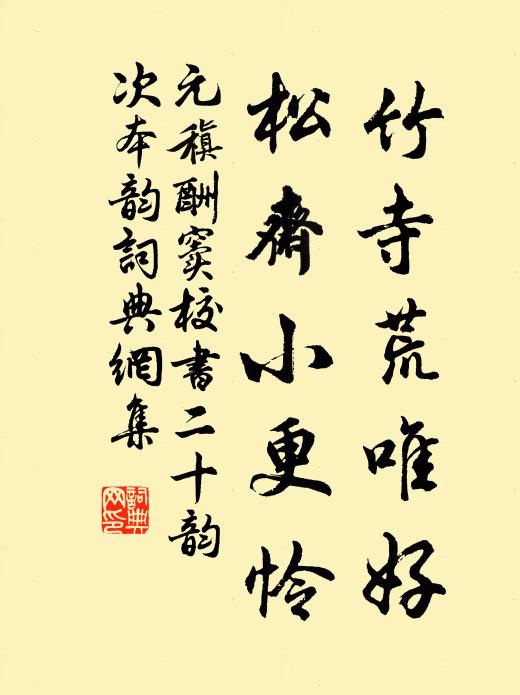 竹寺荒唯好
松齋小更怜
元稹酬窦校書二十韵
次本韵詞典網集
詞典
网印